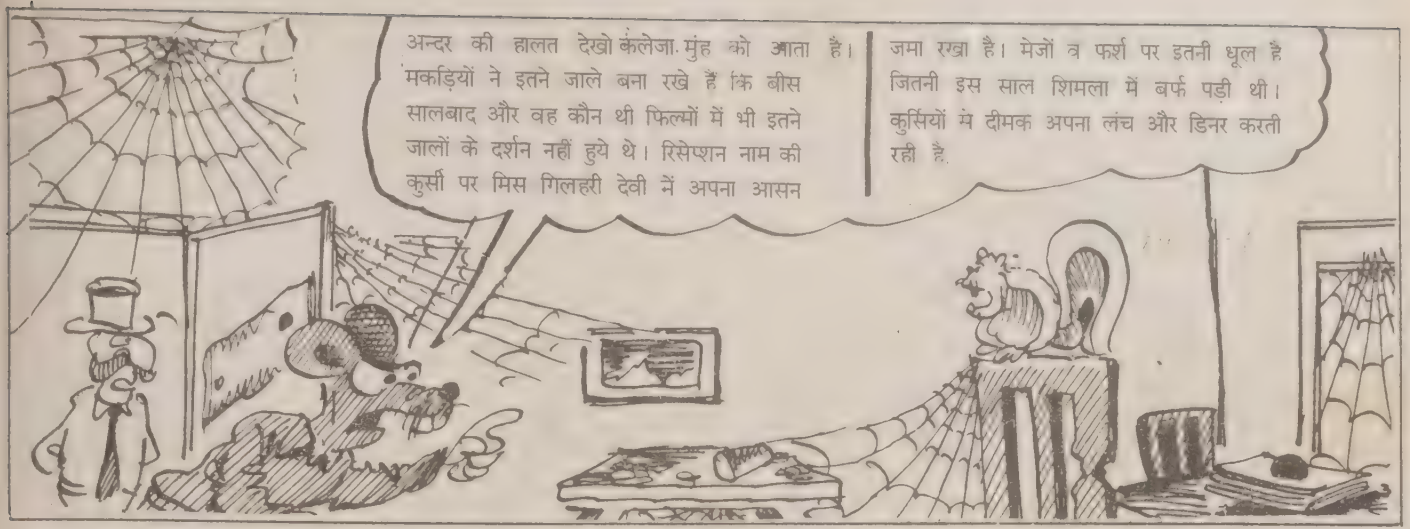 अन्दर की हालत देखो कलेजा मुंह को आता है।
मकड़ियों ने इतने जाले बना रखे हैं कि बीस
सालबाद और वह कौन थी फिल्मों में भी इतने
जालों के दर्शन नहीं हुये थे। रिसेप्शन नाम की
कुर्सी पर मिस गिलहरी देवी नें अपना आसन
जमा रखा है। मेजों व फर्श पर इतनी धूल है
जितनी इस साल शिमला में बर्फ पड़ी थी।
कुर्सियों में दीमक अपना लंच और डिनर करती
रही है.